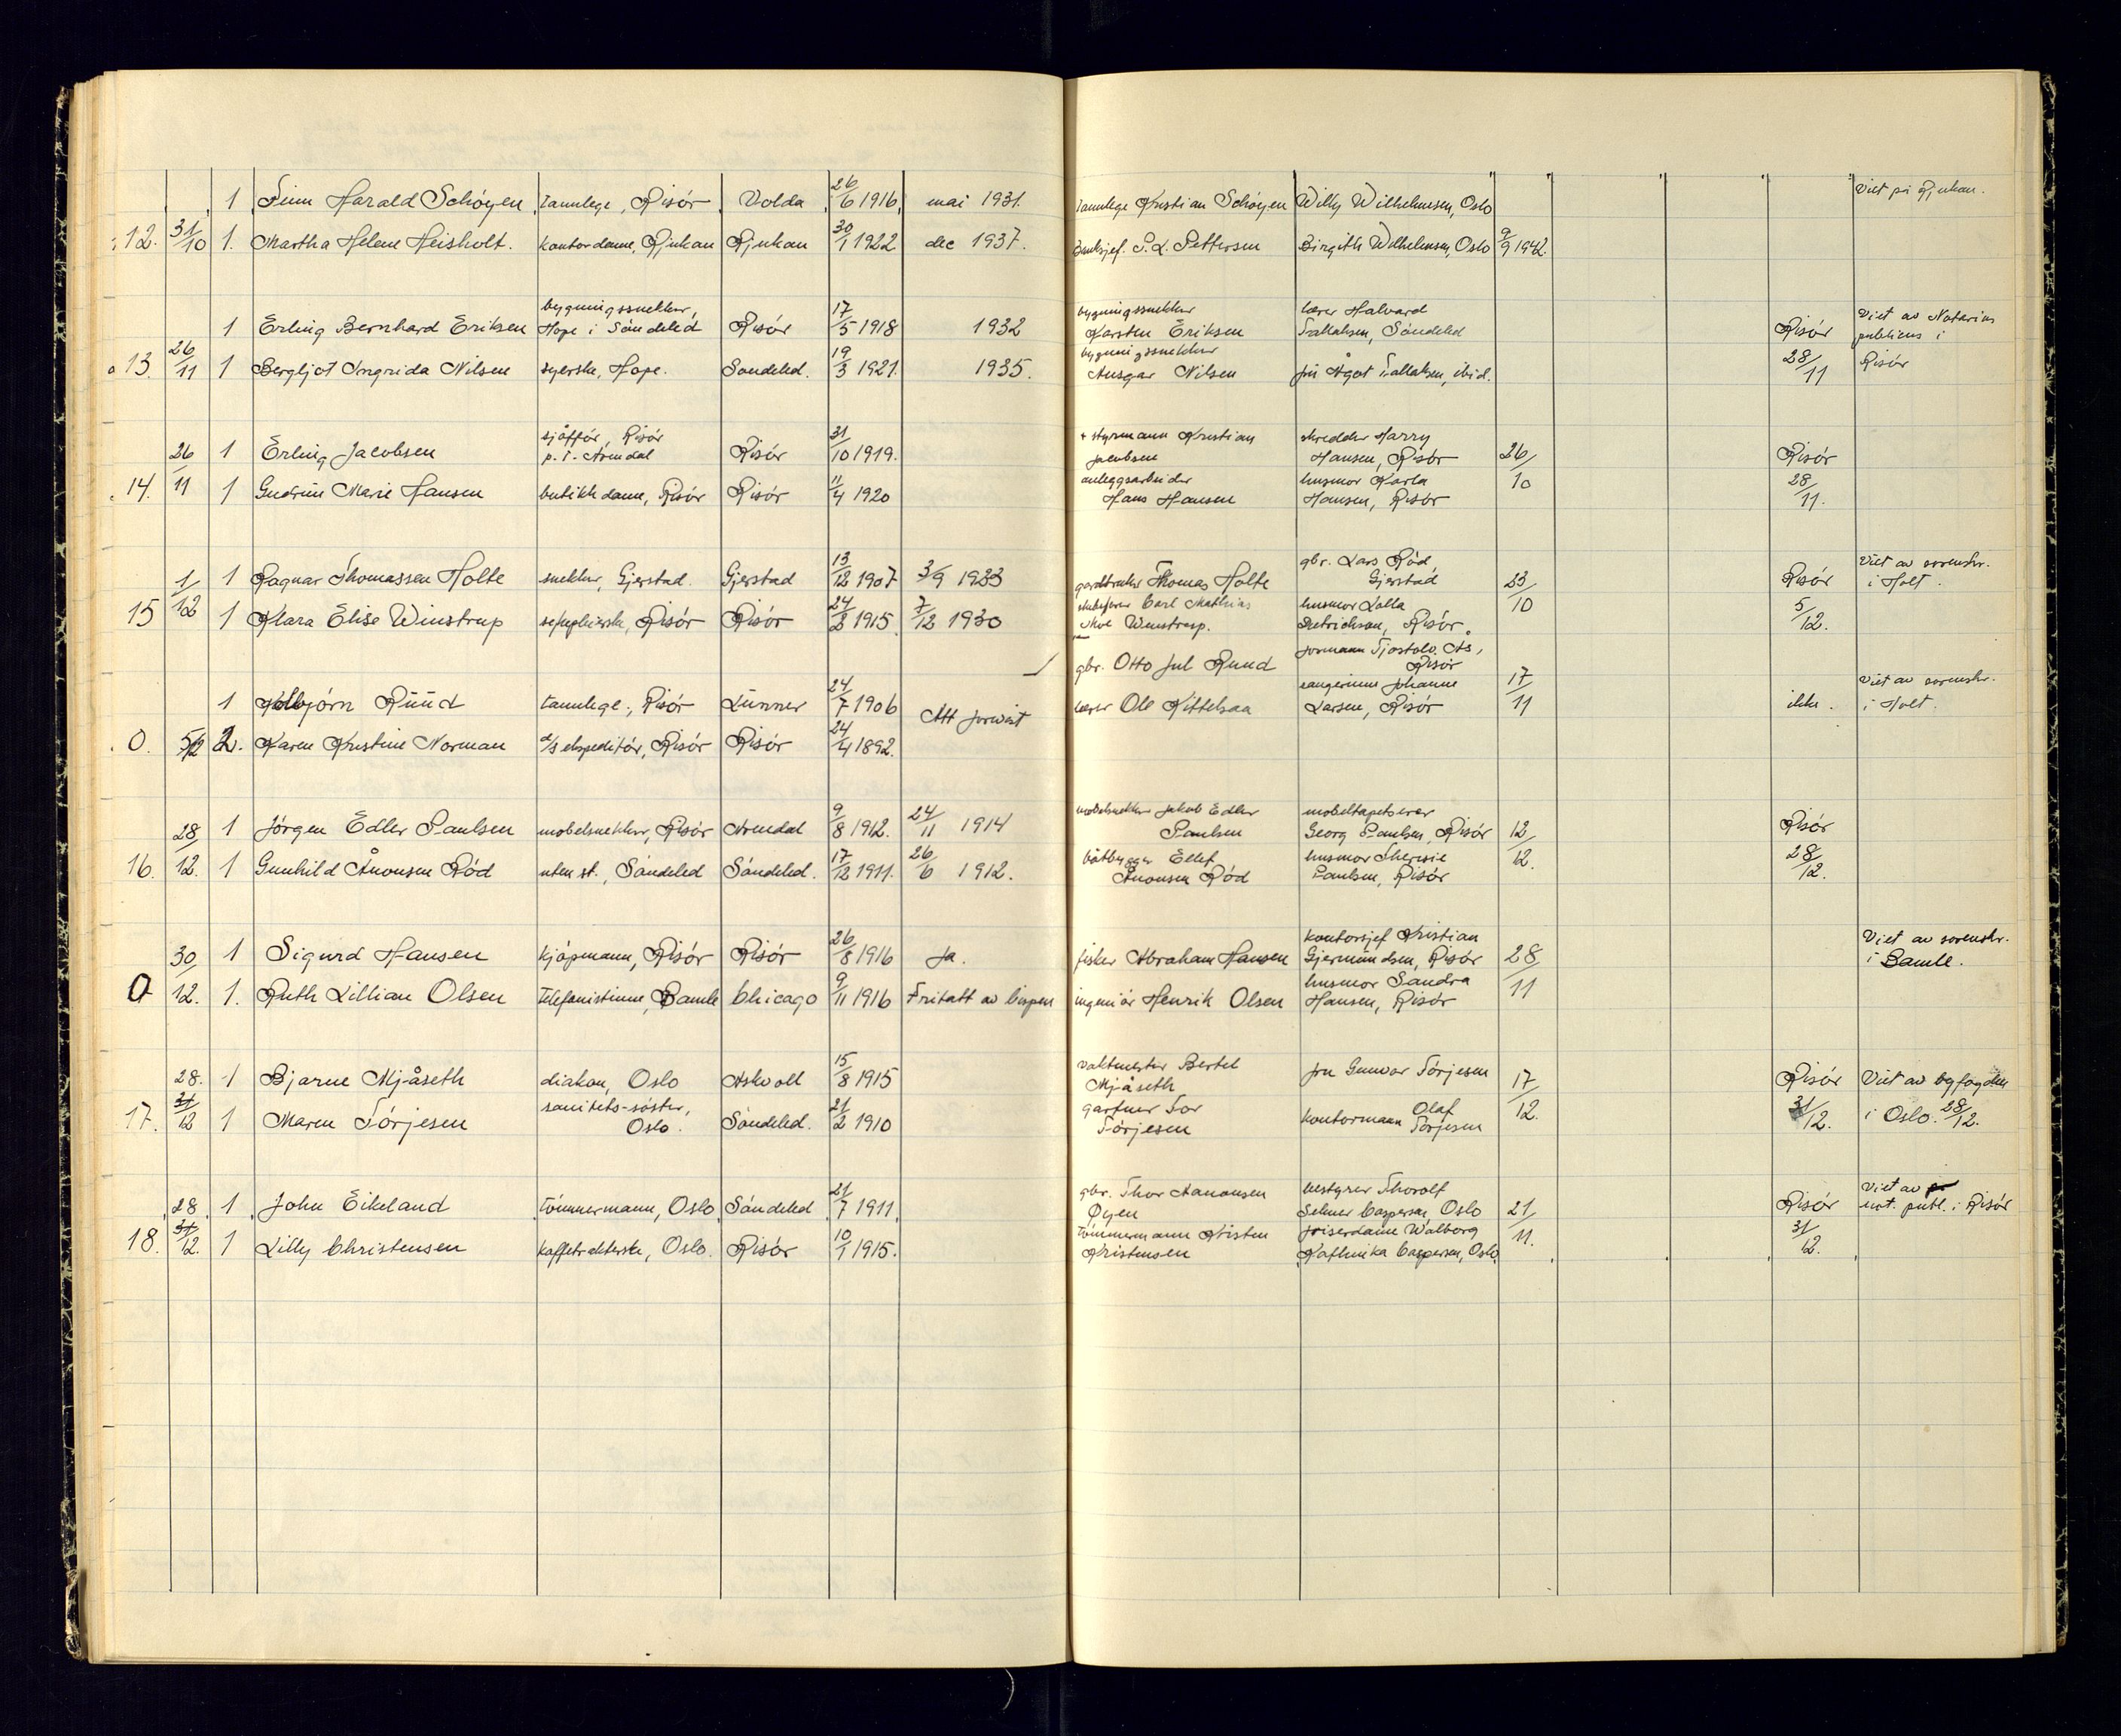 1 Finn Harald Schöyen tannlege, Risör Volda 26/6 1916 mai 1931. tannlege Kristian Schöyen Willy Wilhelmsen, Oslo Viet på Rjukan.
12. 31/10 1. Martha Helene Heisholt. kontordame, Rjukan Rjukan 30/1 1922 dec 1937. Banksjef. Birgith Wilhelmsen, Oslo 9/9 1942.
bygningssnekker, 17 bygningssnekker lærer Halvard Viet av Notarius
1 Erling Bernhard Eriksen Hope i Söndeled Risör /5 1918 1932 Karsten Eriksen Tallaksen, Söndeled Risör publicus i
13. 26/11 1 Bergljot Ingrida Nilsen syerske, Hope. Sondeled. 19/3 1921. 1935. bygningssnekker Ansgar Nilsen fru Ågot Tallaksen, ibid. 28/11 Risör
sjåffør, Risör 31 + styrmann Kristian skredder Harry
26 1 Erling Jacobsen p.t. Arendal Risör /10 1919. Jacobsen Hansen, Risör 26/ Risör
14. 11 1 Gudrun Marie Hansen butikkdame, Risör Risör 11/4 1920 anleggsarbeider husmor Karla 10 28
Hans Hansen Hansen, Risör /11.
gbr. Lars Röd, Viet av sorenskr.
1/ 1 Ragnar Thomassen Holte snekker, Gjerstad. Gjerstad 13/12 1907 3/9 1923 gardbruker Thomas Holte Gjerstad 23 Risör i Holt.
15 12 1 Klara Elise Winstrup Risör Risör 24/2 1915. 7/12 1930 Carl Mathias husmor Lalla /10 5/12.
Winstrup. Dietrichson, Risör.
gbr. Otto Jul Ruud formann Tjostolv. Ås, Risör
1 Kolbjörn Ruud tannlege, Risör Lunner 24/7 1906 Att forvist lærer Ole Kittelsaa sangerinne Johanne Larsen, Risör 17/11 ikke. Viet av sorenskr. i Holt.
0. 5/12 2. Karen Kristine Norman a/s ekspeditör, Risör Risör 24/4 1892.
28/ 1 Jörgen Edler Paulsen mobelsnekker, Risör Arendal 9/8 1912. 24/11 1914 mobelsnekker Jakob Edler Paulsen mobeltapetserer Georg Paulsen, Risör 12/ Risör
16. 12. 1 Gunhild Ånonsen Röd uten st., Söndeled Söndeled. 17/12 1911. 26/6 1912. båtbygger Ellef Ånonsen Röd husmor Theresie Paulsen, Risör 12. 28/12.
kontorsjef Kristian Viet av sorenskr.
30/ 1 Sigurd Hansen kjöpmann, Risör Risör 26/8 1916 Ja. fisker Abraham Hansen Gjermundsen, Risör 28/ i Bamle.
0 12. 1. Ruth Lillian Olsen Telefonistinne, Bamle Chicago 9/11 1916 Fritatt av bispen ingeniör Henrik Olsen husmor Sandra Hansen, Risör 11
28. 1 Bjarne Mjåseth diakon, Oslo Askvoll 15/8 1915 vaktmester Bertel Mjåseth fru Gunvor Törjesen 17/ Risör Viet av byfogden
17. 31/12 1 Maren Törjesen sanitets-söster, Oslo. Söndeled. 21/2 1910 gartner Tor Törjesen kontormann Olaf Törjesen 12. 31/12. i Oslo. 28/12.
28 1 John Eikeland tömmermann, Oslo. Söndeled 21/7 1911 gbr. Thor Aanonsen Øyen bestyrer Thorolf Selmer Caspersen, Oslo 21/ Risör Viet av not. publ. i Risör
18. 31/12. 1 Lilly Christensen kaffetrakterske, Oslo. Risör 10/1 1915. tömmermann Kristen Kristensen friserdame Walborg Kathinka Caspersen, Oslo. 11. 31/12.